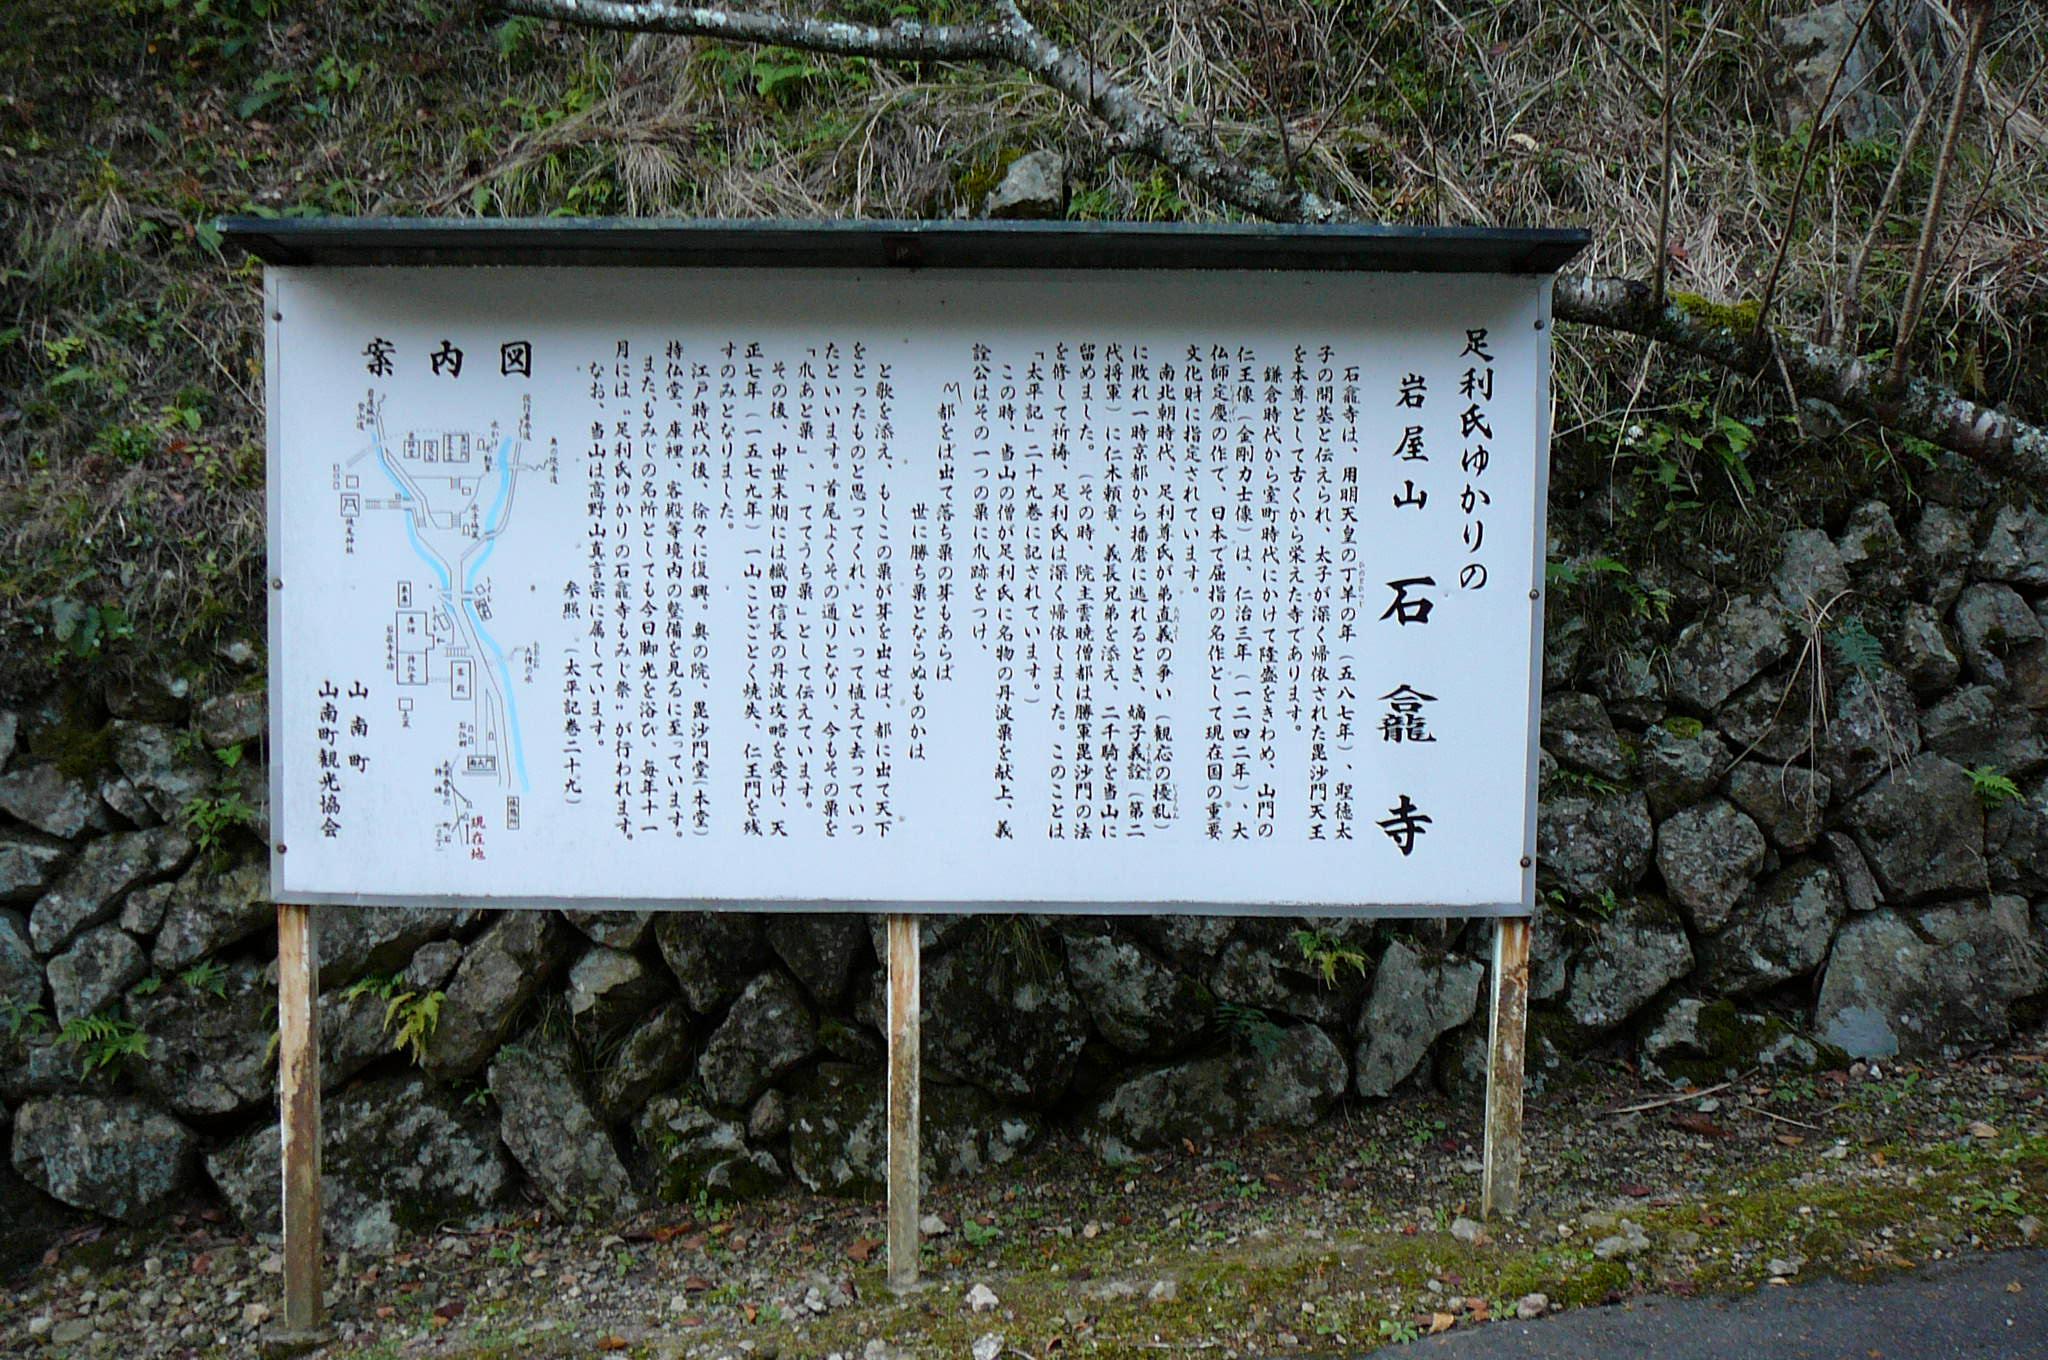 足利氏ゆかりの
岩屋山 石龕寺
石龕寺は、用明天皇の丁羊の年（五八七年）、聖徳太
子の開基と伝えられ、太子が深く帰依された毘沙門天王
を本尊として古くから栄えた寺であります。
鎌倉時代から室町時代にかけて隆盛をきわめ、山門の
仁王像（金剛力士像）は、仁治三年（一二四二年）、大
仏師定慶の作で、日本で屈指の名作として現在国の重要
文化財に指定されています。
南北朝時代、足利尊氏が弟直義の争い（観応の擾乱）
に敗れ一時京都から播磨に逃れるとき、嫡子義詮（第二
代将軍）に仁木頼章、義長兄弟を添え、二千騎を当山に
留めました。（その時、院主雲暁僧都は勝軍毘沙門の法
を修して祈祷、足利氏は深く帰依しました。このことは
「太平記」二十九巻に記されています。）
この時、当山の僧が足利氏に名物の丹波栗を献上、義
詮公はその一つの栗に爪跡をつけ、
〽都をば出て落ち栗の芽もあらば
世に勝ち栗とならぬものかは
と歌を添え、もしこの栗が芽を出せば、都に出て天下
をとったものと思ってくれ、といって植えて去っていっ
たといいます。首尾よくその通りとなり、今もその栗を
「爪あと栗」、「ててうち栗」として伝えています。
その後、中世末期には織田信長の丹波攻略を受け、天
正七年（一五七九年）一山ことごとく焼失、仁王門を残
すのみとなりました。
江戸時代以後、徐々に復興。奥の院、毘沙門堂（本堂）
持仏堂、庫裡、客殿等境内の整備を見るに至っています。
また、もみじの名所としても今日脚光を浴び、毎年十一
月には〝足利氏ゆかりの石龕寺もみじ祭〟が行われます。
なお、当山は高野山真言宗に属しています。
参照（太平記巻二十九）
案内図
奥の院参道
役行者参道
焼尾神社
石龕寺本坊
庫裡
持仏堂
客殿
トイレ
石仏群
南大門
休憩所
現在地
山南町
山南町観光協会